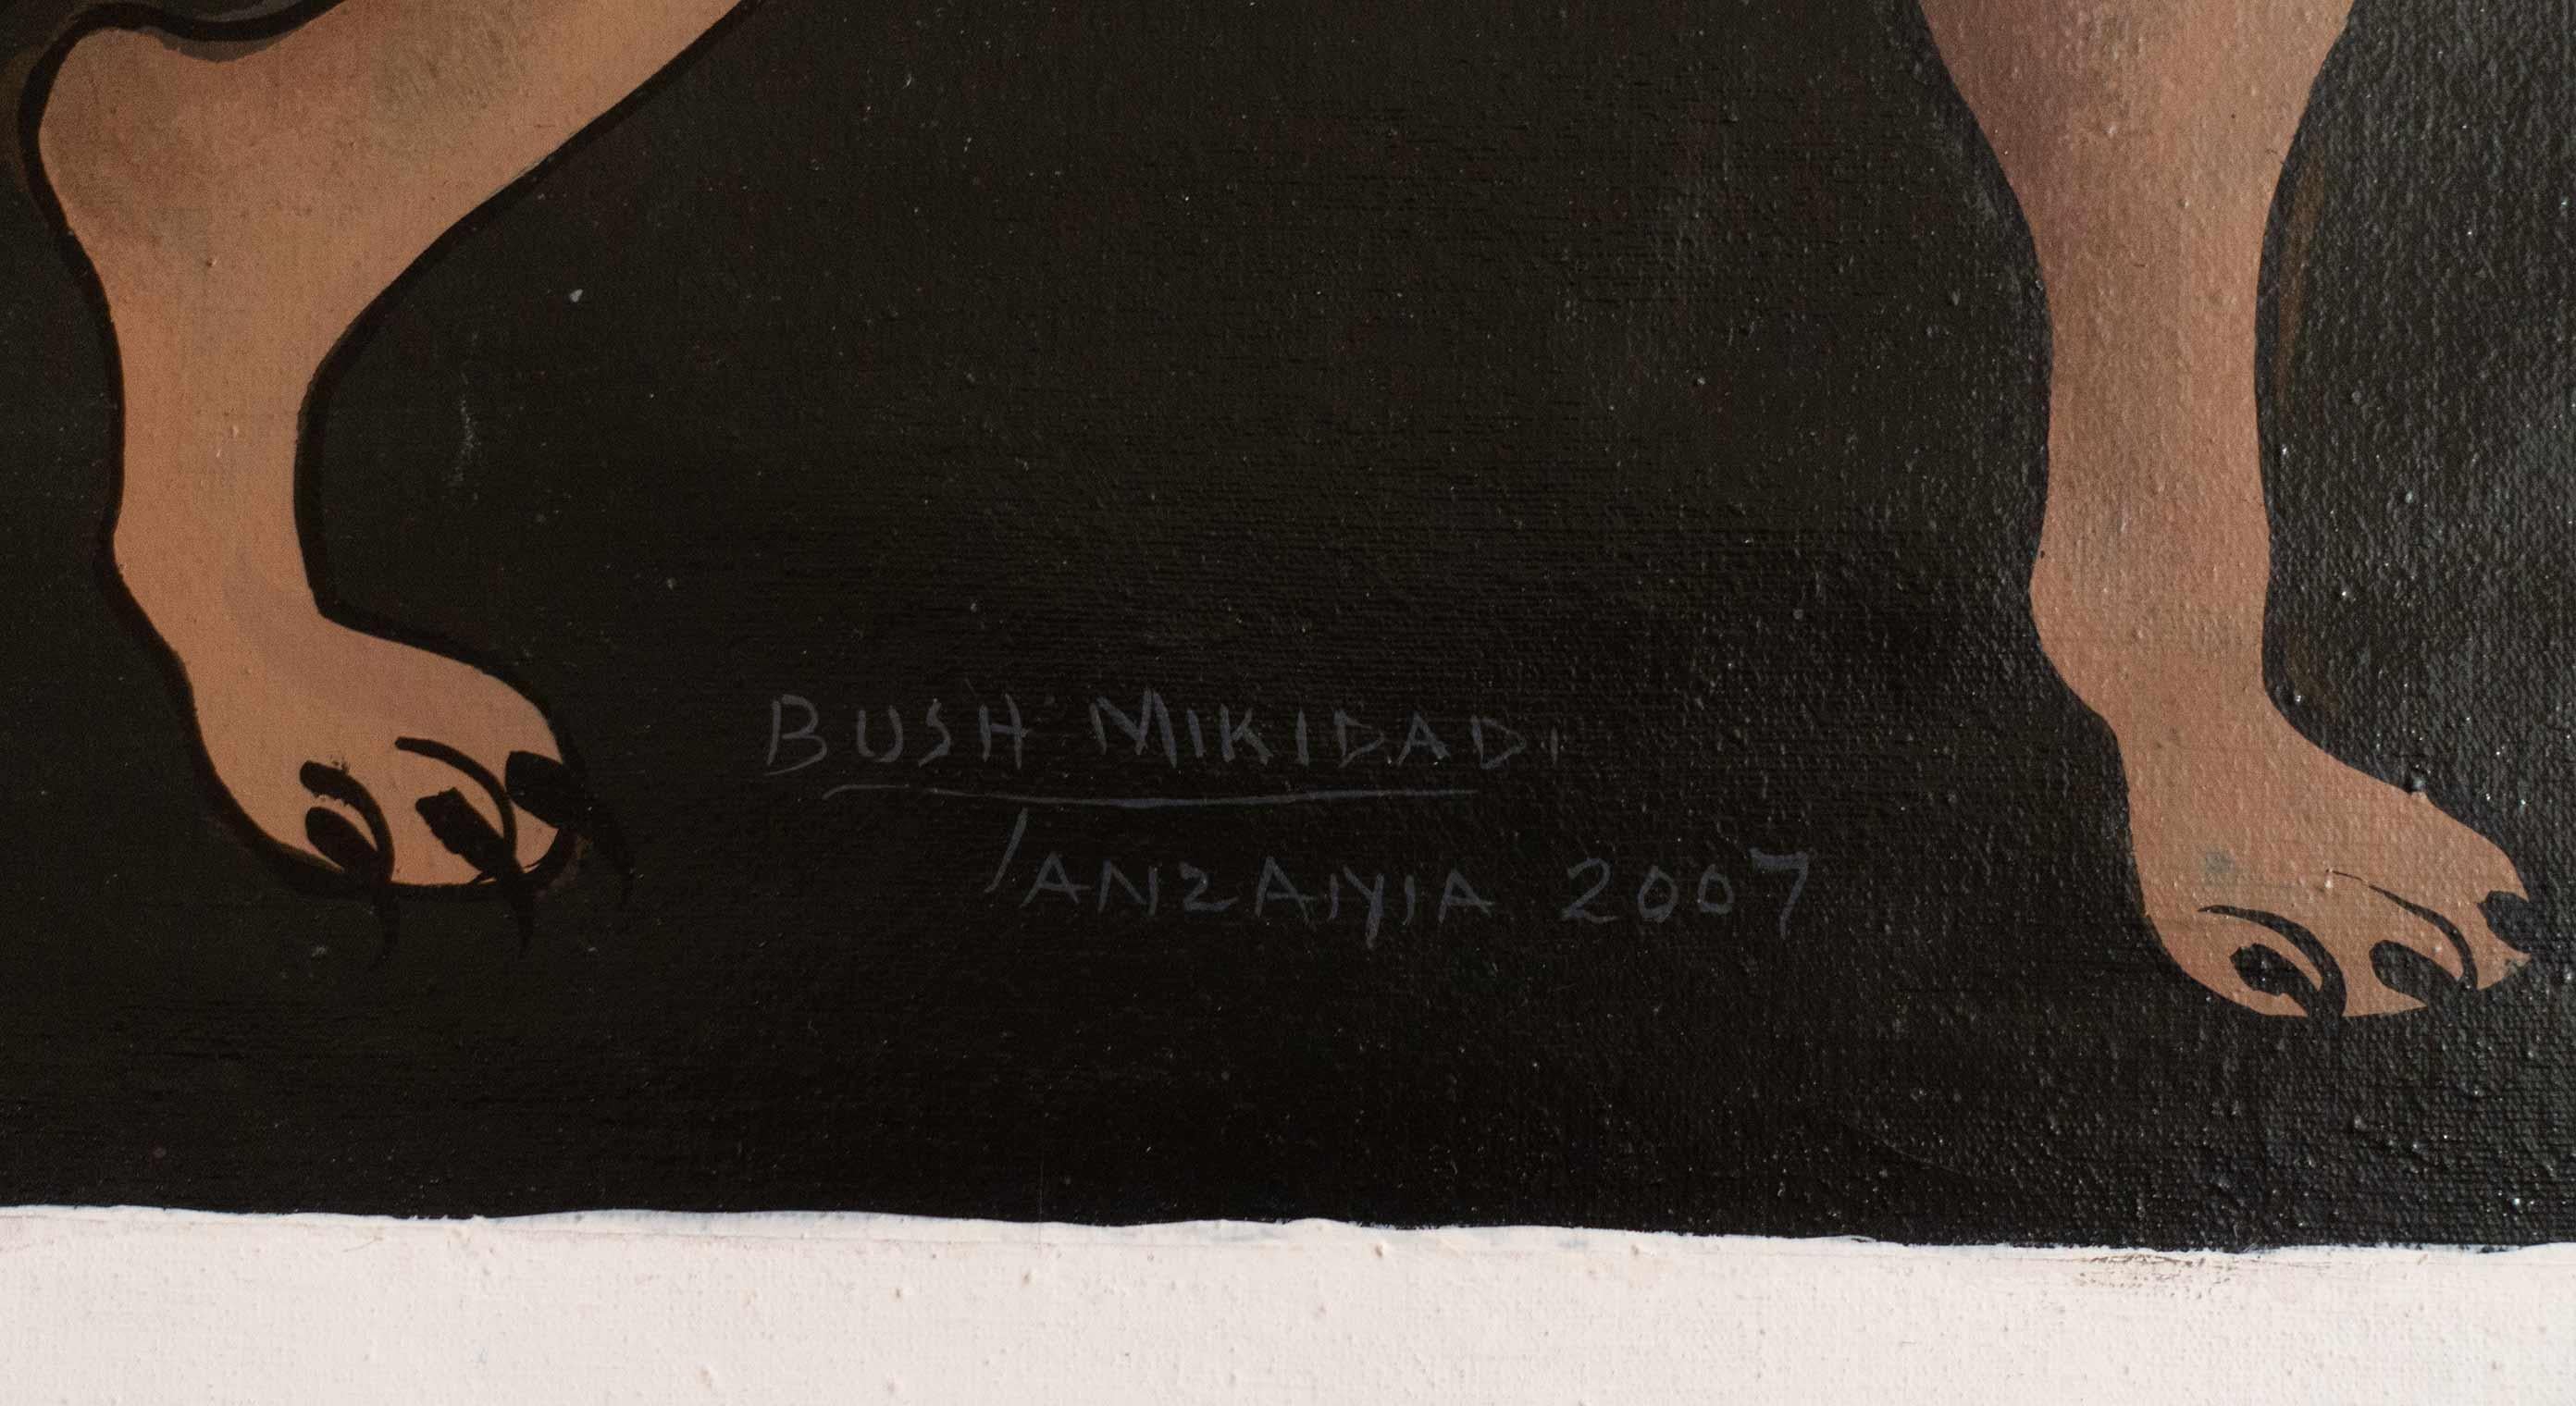 BUSH MIKIDADI
TANZANIA 2007